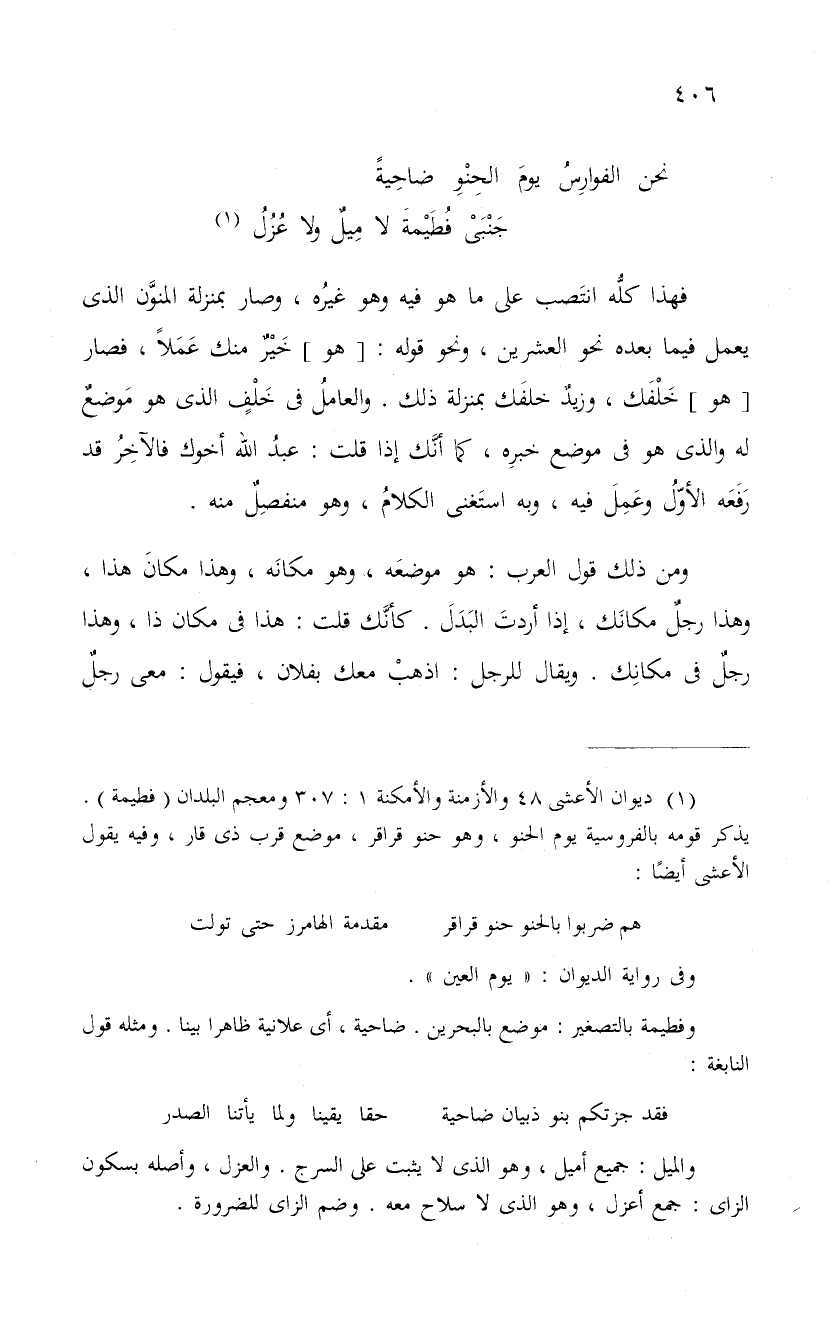 ٤٠٦
نحن الفوارِسُ يومَ الحِنْوِ ضاحِيةً
جَنْبَىْ فُطَيْمةَ لا مِيلٌ ولا عُزُلُ (١)
فهذا كلُّه انتَصب على ما هو فيه وهو غيرُه ، وصار بمنزلة المنوَّن الذى
يعمل فيما بعده نحو العشرين ، ونحو قوله : [ هو ] خَيْرٌ منك عَمَلاً ، فصار
[ هو ] خَلْفَك ، وزيدٌ خلفَك بمنزلة ذلك . والعاملُ فى خَلْفٍ الذى هو مَوضعٌ
له والذى هو فى موضع خبرِه ، كما أنَّك إذا قلت : عبدُ الله أخوك فالآخِرُ قد
رَفَعَه الأوّلُ وعَمِلَ فيه ، وبه استَغنى الكلامُ ، وهو منفصِلٌ منه .
ومن ذلك قول العرب : هو موضعَه ، وهو مكانَه ، وهذا مكانَ هذا ،
وهذا رجلٌ مكانَك ، إذا أردتَ البَدَلَ . كأنَّك قلت : هذا فى مكان ذا ، وهذا
رجلٌ فى مكانِك . ويقال للرجل : اذهبْ معك بفلان ، فيقول : معى رجلٌ
(١) ديوان الأعشى ٤٨ والأزمنة والأمكنة ١ : ٣٠٧ ومعجم البلدان ( فطيمة ) .
يذكر قومه بالفروسية يوم الحنو ، وهو حنو قراقر ، موضع قرب ذى قار ، وفيه يقول
الأعشى أيضًا :
هم ضربوا بالحنو حنو قراقر مقدمة الهامرز حتى تولت
وفى رواية الديوان : « يوم العين » .
وفطيمة بالتصغير : موضع بالبحرين . ضاحية ، أى علانية ظاهرا بينا . ومثله قول
النابغة :
فقد جزتكم بنو ذبيان ضاحية حقا يقينا ولما يأتنا الصدر
والميل : جميع أميل ، وهو الذى لا يثبت على السرج . والعزل ، وأصله بسكون
الزاى : جمع أعزل ، وهو الذى لا سلاح معه . وضم الزاى للضرورة .